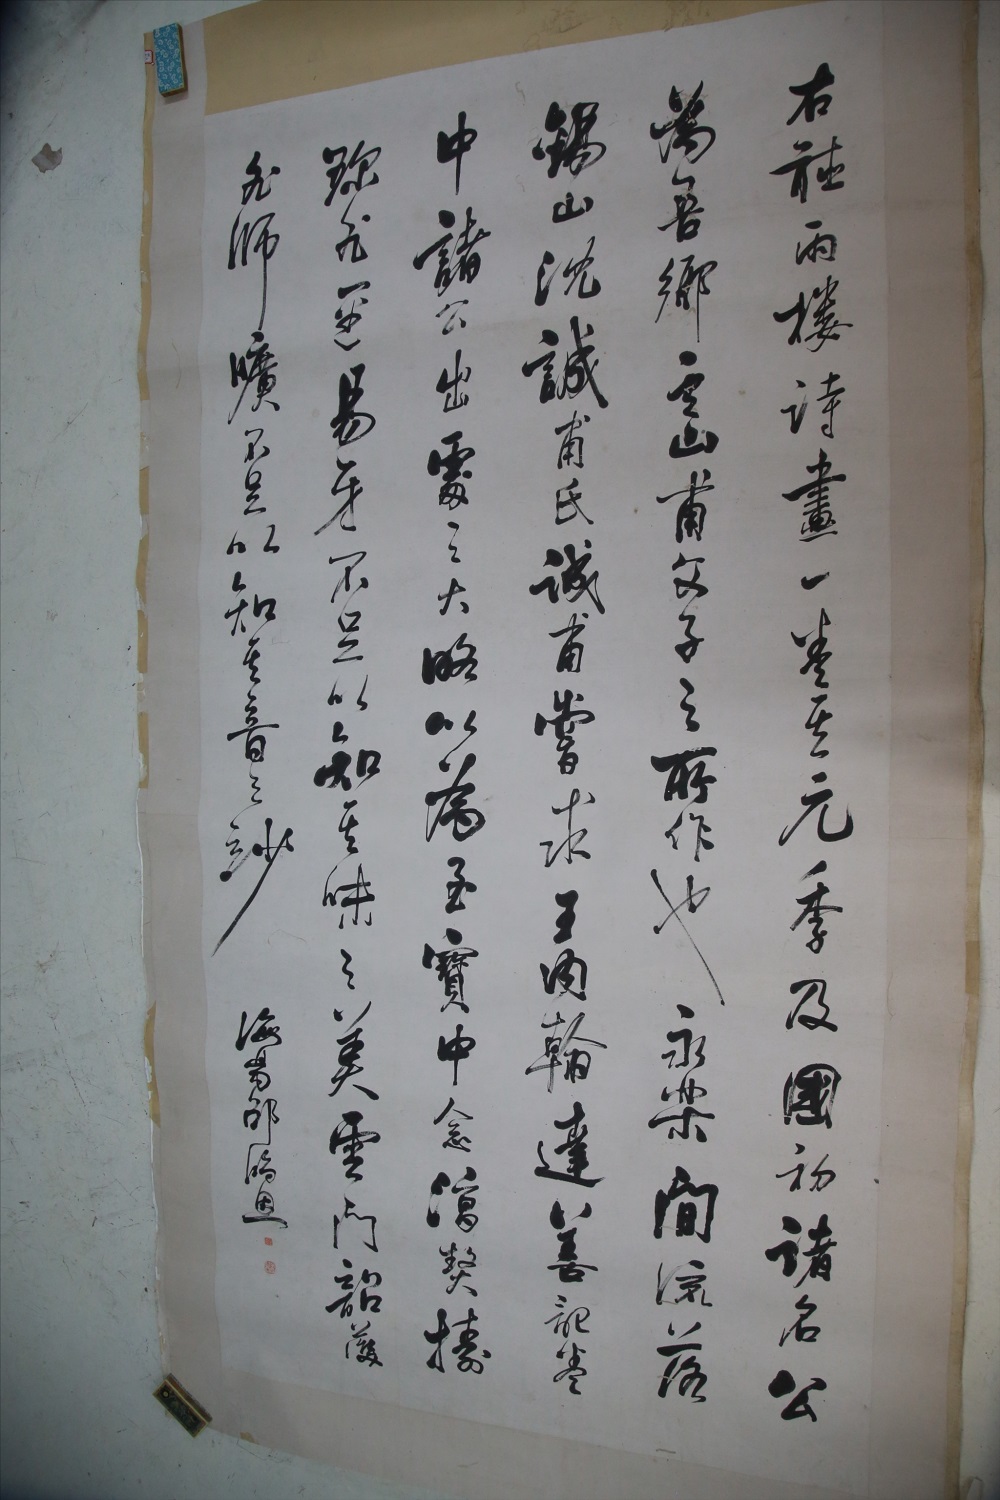 右聽雨樓詩畫一卷其元季及國初諸名公
為吾鄉雲山甫父子之所作也永樂間流落
錫山沈誠甫氏誠甫嘗求王內翰達善記卷
中諸公出處之大略以為至寶中念
非易牙不足以知其味之美雲門韶濩
非師曠不足以知其音之妙
海陽邵鴻恩